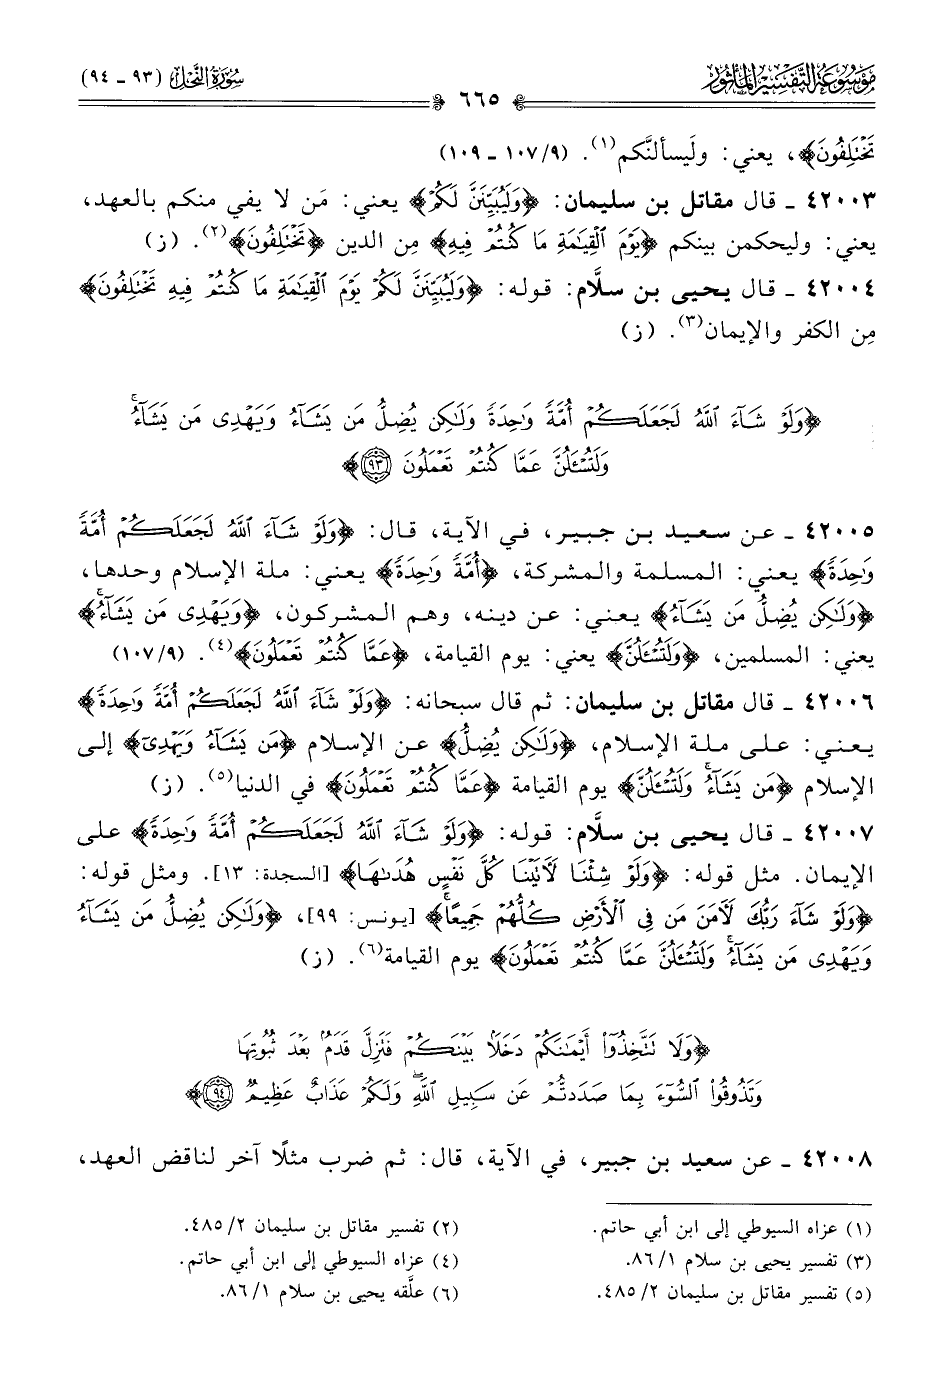 مَوْسُوعَة التَّفْسِير المَأْثُور
سُورَةُ النَّحْل (٩٣ - ٩٤)
٦٦٥
تَخْتَلِفُونَ﴾، يعني: ولَيسألنَّكم(١). (٩/ ١٠٧ - ١٠٩)
٤٢٠٠٣ - قال مقاتل بن سليمان: ﴿وَلَيُبَيِّنَنَّ لَكُمْ﴾ يعني: مَن لا يفي منكم بالعهد،
يعني: وليحكمن بينكم ﴿يَوْمَ الْقِيَٰمَةِ مَا كُنتُمْ فِيهِ﴾ مِن الدين ﴿تَخْتَلِفُونَ﴾(٢). (ز)
٤٢٠٠٤ - قال يحيى بن سلَّام: قوله: ﴿وَلَيُبَيِّنَنَّ لَكُمْ يَوْمَ الْقِيَٰمَةِ مَا كُنتُمْ فِيهِ تَخْتَلِفُونَ﴾
مِن الكفر والإيمان(٣). (ز)
﴿وَلَوْ شَآءَ اللَّهُ لَجَعَلَكُمْ أُمَّةً وَٰحِدَةً وَلَٰكِن يُضِلُّ مَن يَشَآءُ وَيَهْدِى مَن يَشَآءُۚ
وَلَتُسْـَٔلُنَّ عَمَّا كُنتُمْ تَعْمَلُونَ ٩٣﴾
٤٢٠٠٥ - عن سعيد بن جبير، في الآية، قال: ﴿وَلَوْ شَآءَ اللَّهُ لَجَعَلَكُمْ أُمَّةً
وَٰحِدَةً﴾ يعني: المسلمة والمشركة، ﴿أُمَّةً وَٰحِدَةً﴾ يعني: ملة الإسلام وحدها،
﴿وَلَٰكِن يُضِلُّ مَن يَشَآءُ﴾ يعني: عن دينه، وهم المشركون، ﴿وَيَهْدِى مَن يَشَآءُۚ﴾
يعني: المسلمين، ﴿وَلَتُسْـَٔلُنَّ﴾ يعني: يوم القيامة، ﴿عَمَّا كُنتُمْ تَعْمَلُونَ﴾(٤). (٩/ ١٠٧)
٤٢٠٠٦ - قال مقاتل بن سليمان: ثم قال سبحانه: ﴿وَلَوْ شَآءَ اللَّهُ لَجَعَلَكُمْ أُمَّةً وَٰحِدَةً﴾
يعني: على ملة الإسلام، ﴿وَلَٰكِن يُضِلُّ﴾ عن الإسلام ﴿مَن يَشَآءُ وَيَهْدِى﴾ إلى
الإسلام ﴿مَن يَشَآءُۚ وَلَتُسْـَٔلُنَّ﴾ يوم القيامة ﴿عَمَّا كُنتُمْ تَعْمَلُونَ﴾ في الدنيا(٥). (ز)
٤٢٠٠٧ - قال يحيى بن سلَّام: قوله: ﴿وَلَوْ شَآءَ اللَّهُ لَجَعَلَكُمْ أُمَّةً وَٰحِدَةً﴾ على
الإيمان. مثل قوله: ﴿وَلَوْ شِئْنَا لَأٓتَيْنَا كُلَّ نَفْسٍ هُدَىٰهَا﴾ [السجدة: ١٣]. ومثل قوله:
﴿وَلَوْ شَآءَ رَبُّكَ لَأٓمَنَ مَن فِى الْأَرْضِ كُلُّهُمْ جَمِيعًاۚ﴾ [يونس: ٩٩]، ﴿وَلَٰكِن يُضِلُّ مَن يَشَآءُ
وَيَهْدِى مَن يَشَآءُۚ وَلَتُسْـَٔلُنَّ عَمَّا كُنتُمْ تَعْمَلُونَ﴾ يوم القيامة(٦). (ز)
﴿وَلَا تَتَّخِذُوٓا۟ أَيْمَٰنَكُمْ دَخَلًۢا بَيْنَكُمْ فَتَزِلَّ قَدَمٌۢ بَعْدَ ثُبُوتِهَا
وَتَذُوقُوا۟ السُّوٓءَ بِمَا صَدَدتُّمْ عَن سَبِيلِ اللَّهِۖ وَلَكُمْ عَذَابٌ عَظِيمٌ ٩٤﴾
٤٢٠٠٨ - عن سعيد بن جبير، في الآية، قال: ثم ضرب مثلًا آخر لناقض العهد،
(١) عزاه السيوطي إلى ابن أبي حاتم.
(٢) تفسير مقاتل بن سليمان ٢/ ٤٨٥.
(٣) تفسير يحيى بن سلام ١/ ٨٦.
(٤) عزاه السيوطي إلى ابن أبي حاتم.
(٥) تفسير مقاتل بن سليمان ٢/ ٤٨٥.
(٦) علَّقه يحيى بن سلام ١/ ٨٦.